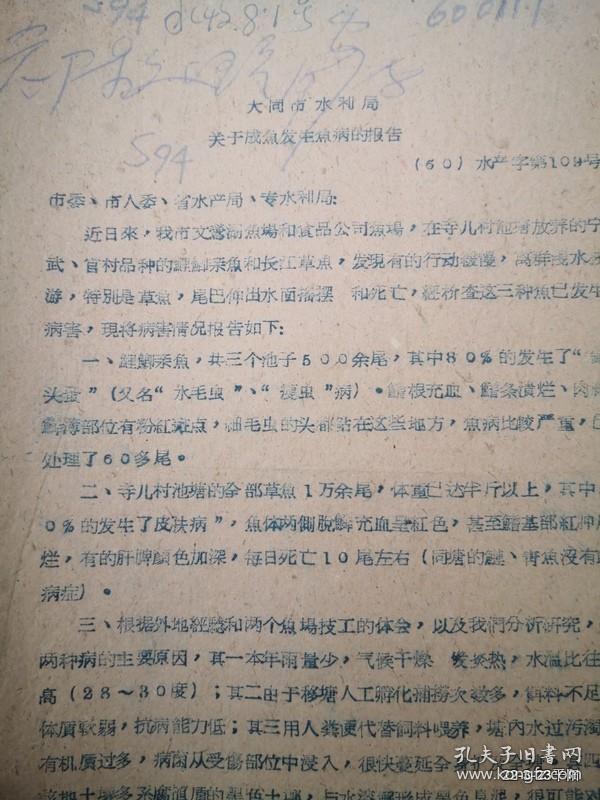 S94
大同市水利局
关于成魚发生魚病的报告
S94
(60)水产字第109号
市委、市人委、省水产局、专水利局:
近日來,我市文瀛湖魚場和食品公司魚場,在寺儿村池塘放养的宁
武、官村品种的鯉鯽亲魚和長江草魚,发現有的行动缓慢,离群浅水
游,特別是草魚,尾巴伸出水面搖摆 和死亡,經检查这三种魚已发生
病害,現将病害情况报告如下:
一、鯉鯽亲魚,共三个池子500余尾,其中80%的发生了“
头蚤”(又名“水毛虫”、“ 虫”病)。鰭根充血、鰭条溃烂、肉
鱗薄部位有粉紅斑点,細毛虫的头都鉆在这些地方,魚病比較严重,
处理了60多尾。
二、寺儿村池塘的全部草魚1万余尾,体重已达半斤以上,其中
0%的发生了皮肤病”,魚体两側脫鱗充血呈紅色,甚至鰭基部紅肿
烂,有的肝脾顏色加深,每日死亡10尾左右(同塘的鰱、青魚没有
病症)。
三、根据外地經驗和两个魚場技工的体会,以及我們分析研究,
两种病的主要原因,其一本年雨量少,气候干燥 炎热,水溫比往
高(28~30度);其二由于移塘人工孵化捕捞次数多,餌料不足
体質軟弱,抗病能力低;其三用人粪便代替飼料喂养,塘內水过污
有机质过多,病菌从受傷部位中浸入,很快蔓延全身
孔夫子旧书网
kongfz.com